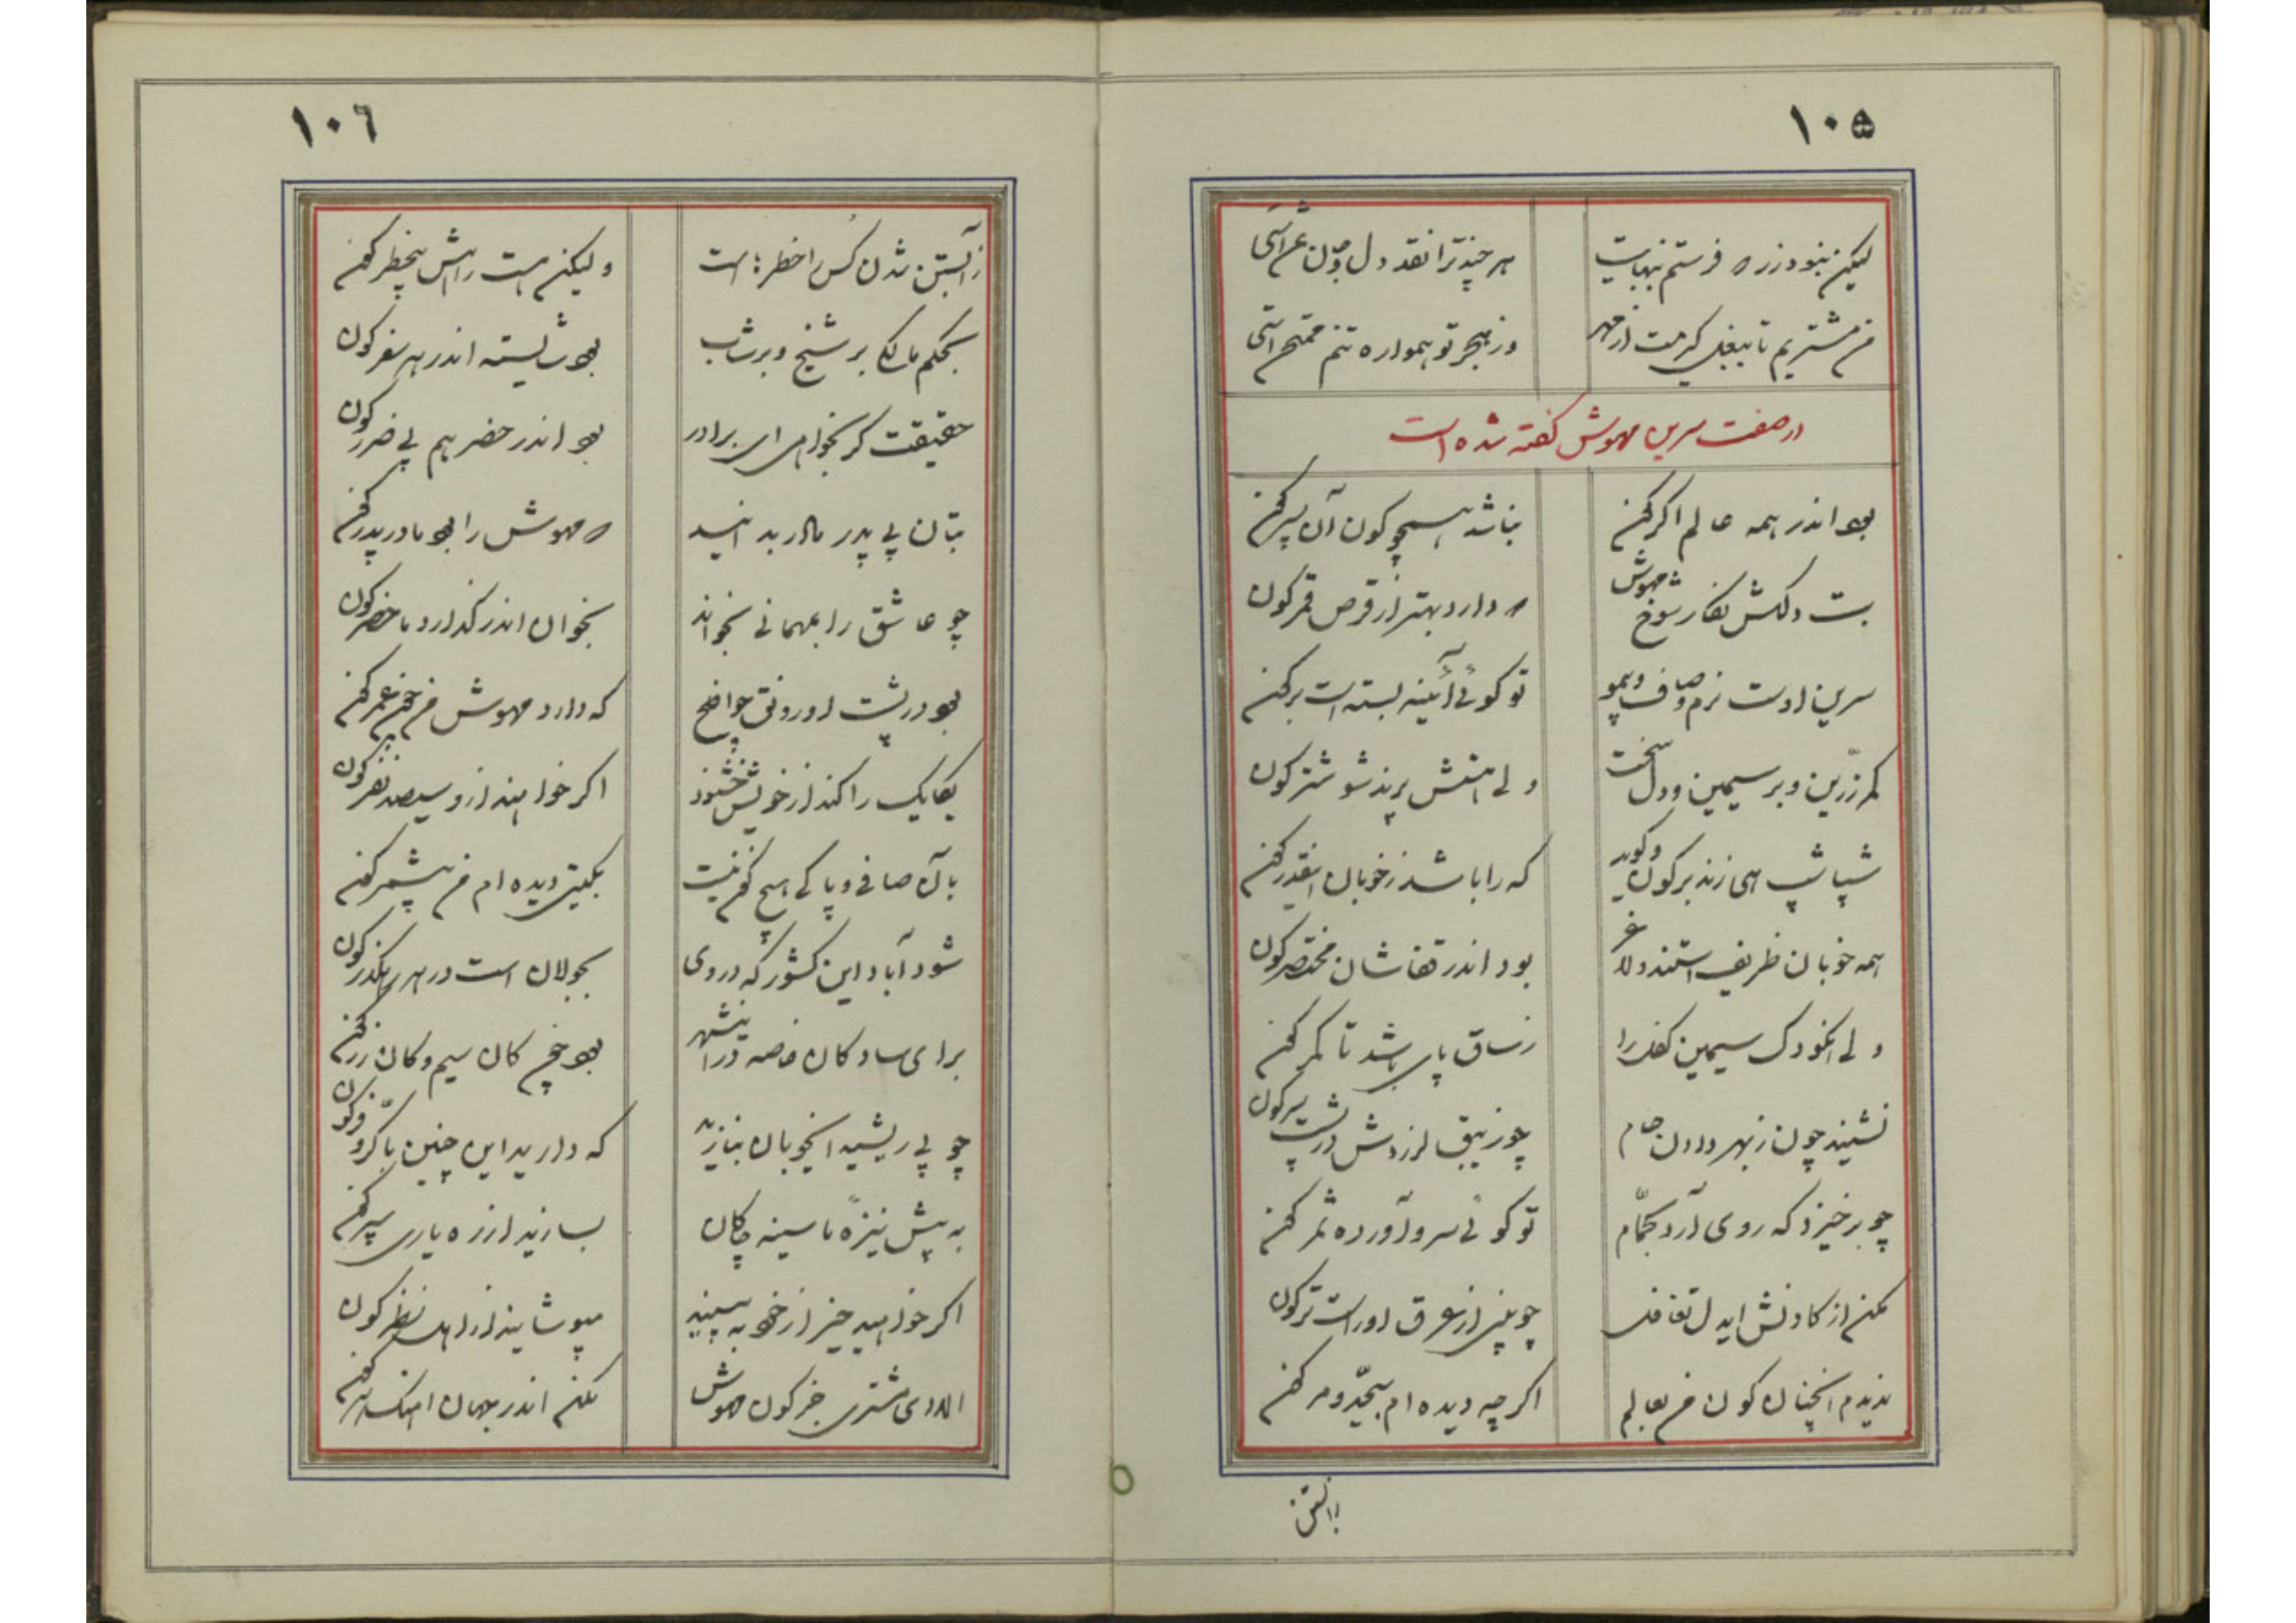 ۱۰۵
لیکن نبود زر که فرستم ببهایت هر چند ترا نقد دل و جان
من مشتریم تا ببغل گیرمت از مهر وز هجر تو همواره تنم
در صفت سرین مهوش گفته شده است
بود اندر همه عالم اگر کون نباشد همچو کون آن پسر کون
بت دلکش نگار شوخ مهوش که دارد بهتر از قرص قمر کون
سرین اوست نرم و صاف و بیمو تو گوئی آئینه بسته است بر کون
کمر زرین و بر سیمین و دل سخت ولی استش پرند شوشتر کون
شپاشپ همی زند بر کون و گوید که را باشد ز خوبان اینقدر کون
همه خوبان ظریف استند و لاغر بود اندر قفاشان مختصر کون
ولی انکودک سیمین کفل را ز ساق پای باشد تا کمر کون
نشیند چون ز بهر دادن جام چو زیبق لرزدش در پشت سر کون
چو برخیزد که روی آرد بحمّام تو گوئی سرو آورده ثمر کون
مکن از کادنش ایدل تغافل چو بینی از عرق او راست تر کون
ندیدم انچنان کون من بعالم اگر چه دیده ام بیحدّ و مر کون
۱۰۶
ز آبستن شدن کس را خطرها است ولیکن هست راهش بیخطر کون
بحکم مالکا بر شیخ و بر شاب بود شایسته اندر هر سفر کون
حقیقت گر بخواهی ای برادر بود اندر حضر هم بی ضرر کون
بتان بی پدر مادر بدانید که مهوش را بود مادر پدر کون
چو عاشق را بمهمانی بخواند بخوان اندر گذارد ماحضر کون
بود در پشت او رونق چو که دارد مهوش من کون
یکایک را کند از خویش خشنود اگر خواهند ازو سیصد نفر کون
بآن صافی و پاکی هیچ کون نیست بگیتی دیده ام من بیشمر کون
شود آباد این کشور که در وی بجولان است در هر رهگذر کون
برای سادگان خاصه در اینشهر بود خود کان سیم و کان زر کون
چو بی ریشید ایخوبان بنازید که دارید این چنین با کرّ و فر کون
به پیش نیزهٔ ما سینه چاکان بسازید از ره یاری سپر کون
اگر خواهید چیز از خود ببینید مپوشانید از اهل نظر کون
الا ای مشتری جز کون مهوش مکن اندر جهان کون